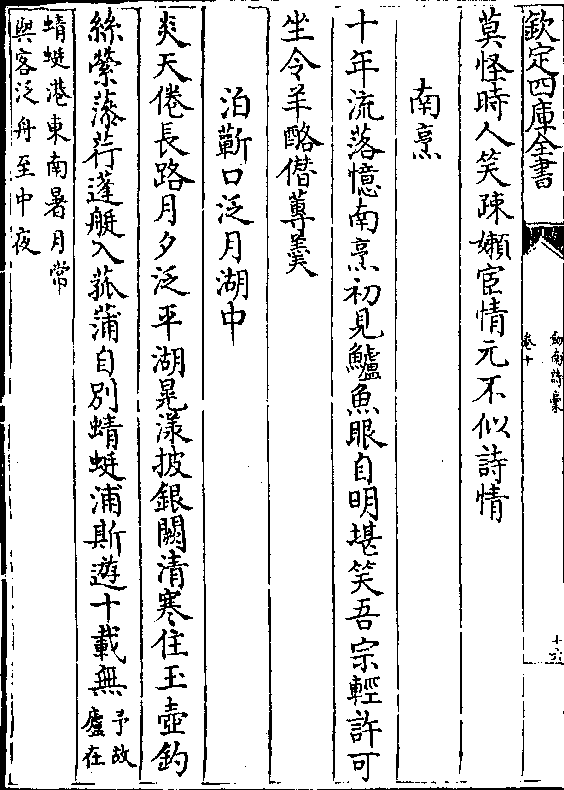 欽定四庫全書
劍南詩藁
卷十
十六
莫怪時人笑疎嬾宦情元不似詩情
南烹
十年流落憶南烹初見鱸魚眼自明堪笑吾宗輕許可
坐令羊酪僣蓴羹
泊蘄口泛月湖中
炎天倦長路月夕泛平湖晃漾披銀闕清寒住玉壺釣
絲縈藻荇蓬艇入菰蒲自別蜻蜓浦斯遊十載無予故
廬在
蜻蜓港東南暑月常
與客泛舟至中夜